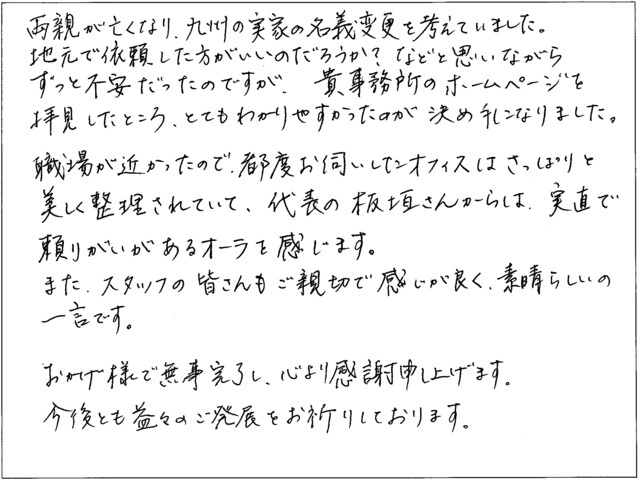 両親が亡くなり、九州の実家の名義変更を考えていました。
地元で依頼した方がいいのだろうか？などと思いながら
ずっと不安だったのですが、貴事務所のホームページを
拝見したところ、とてもわかりやすかったのが決め手になりました。
職場が近かったので、都度お伺いしたオフィスはさっぱりと
美しく整理されていて、代表の板垣さんからは、実直で
頼りがいがあるオーラを感じます。
また、スタッフの皆さんもご親切で感じが良く、素晴らしいの
一言です。
おかげ様で無事完了し、心より感謝申し上げます。
今後とも益々のご発展をお祈りしております。